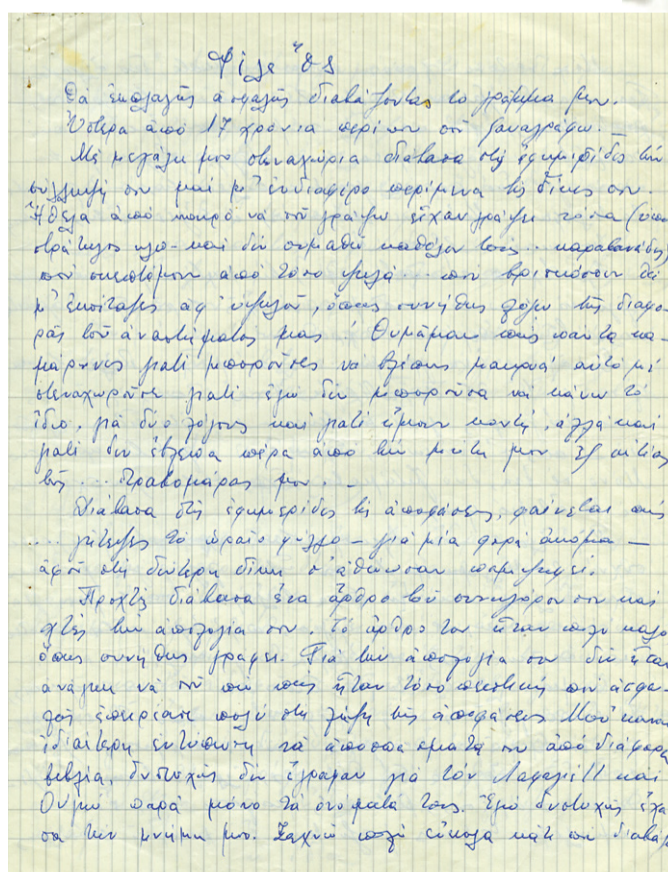 Φίλε
Θά ἐκπλαγῆς ἀσφαλῶς διαβάζοντας τό γράμμα μου.
Ὕστερα ἀπό 17 χρόνια περίπου σοῦ ξαναγράφω. —
Μέ μεγάλη μου στεναχώρια διάβασα στίς ἐφημερίδες τήν
σύλληψή σου καί μ' ἐνδιαφέρο περίμενα τίς δίκες σου.
Ἤθελα ἀπό καιρό νά σοῦ γράψω εἶχαν γράψει τόσα
καί δέν συμπαθῶ καθόλου τούς .. καραβανάδες)
πού σκεπτόμουν ἀπό τόσο ψηλά ... πού βρισκόσουν θά
μ' ἐκοίταξες ἀφ' ὑψηλοῦ, ὅπως συνήθως λόγω τῆς διαφο-
ρᾶς τοῦ ἀναστήματός μας! Θυμᾶμαι πώς πάντα κα-
μάρωνες γιατί μποροῦσες νά βλέπης μακρυά αὐτό μέ
στεναχωροῦσε γιατί ἐγώ δέν μποροῦσα νά κάνω τό
ἴδιο, γιά δύο λόγους καί γιατί ἤμουν κοντή, ἀλλά καί
γιατί δέν ἔβλεπα πέρα ἀπό τήν μύτη μου ἐξ αἰτίας
τῆς ... στραβομάρας μου. —
Διάβασα στίς ἐφημερίδες τίς ἀποφάσεις, φαίνεται πώς
.... γλίτωσες τό ὡραῖο φύλλο — γιά μία φορά ἀκόμα —
ἀφοῦ στή δεύτερη δίκη σ' ἀθώωσαν παμψηφεί.
Προχτές διάβασα ἕνα ἄρθρο τοῦ συνηγόρου σου καί
χτές τήν ἀπολογία σου. Τό ἄρθρο του ἦταν πολύ καλό
ὅπως συνήθως γράφει. Γιά τήν ἀπολογία σου δέν ἦταν
ἀνάγκη νά σοῦ πῶ πώς ἦταν τόσο πειστική πού ἀσφα-
λῶς ἐπηρέασε πολύ στή λήψη τῆς ἀποφάσεως Μοῦ 'κανε
ἰδιαίτερη ἐντύπωση τά ἀποσπάσματά σου ἀπό διάφορα
βιβλία, δυστυχῶς δέν ἔγραφαν γιά τόν καί
Οὐγκώ παρά μόνο τά ὀνόματά τους. Ἐγώ δυστυχῶς ἔχα-
σα τήν μνήμη μου. Ξεχνῶ πολύ εὔκολα κάτι πού διαβάζω